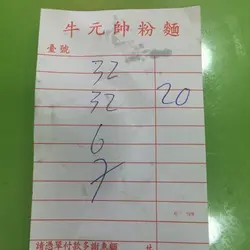 牛元帥粉麵
臺號
32
32 20
6
7
請憑單付款多謝惠顧